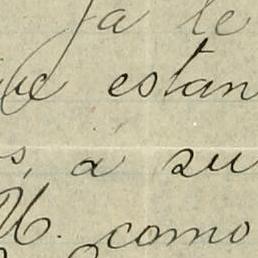 Ja le
estan
s, a su
U. como